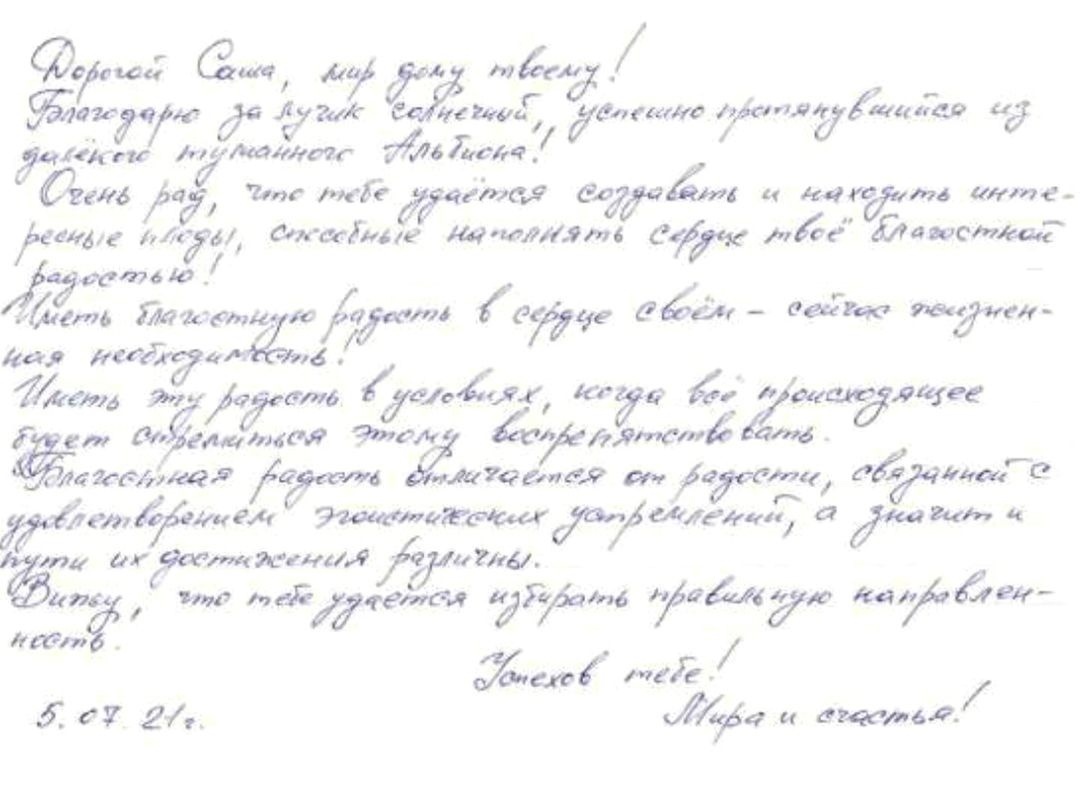 Дорогой Саша, мир дому твоему!
Благодарю за лучик солнечный, успешно протянувшийся из
далёкого туманного Альбиона!
Очень рад, что тебе удаётся создавать и находить инте-
ресные плоды, способные наполнять сердце твоё благостной
радостью!
Иметь благостную радость в сердце своём – сейчас жизнен-
ная необходимость!
Иметь эту радость в условиях, когда всё происходящее
будет стремиться этому воспрепятствовать.
Благостная радость отличается от радости, связанной с
удовлетворением эгоистических устремлений, а значит и
пути их достижения различны.
Вижу, что тебе удаётся избирать правильную направлен-
ность.
Успехов тебе!
5. 07. 21г. Мира и счастья!